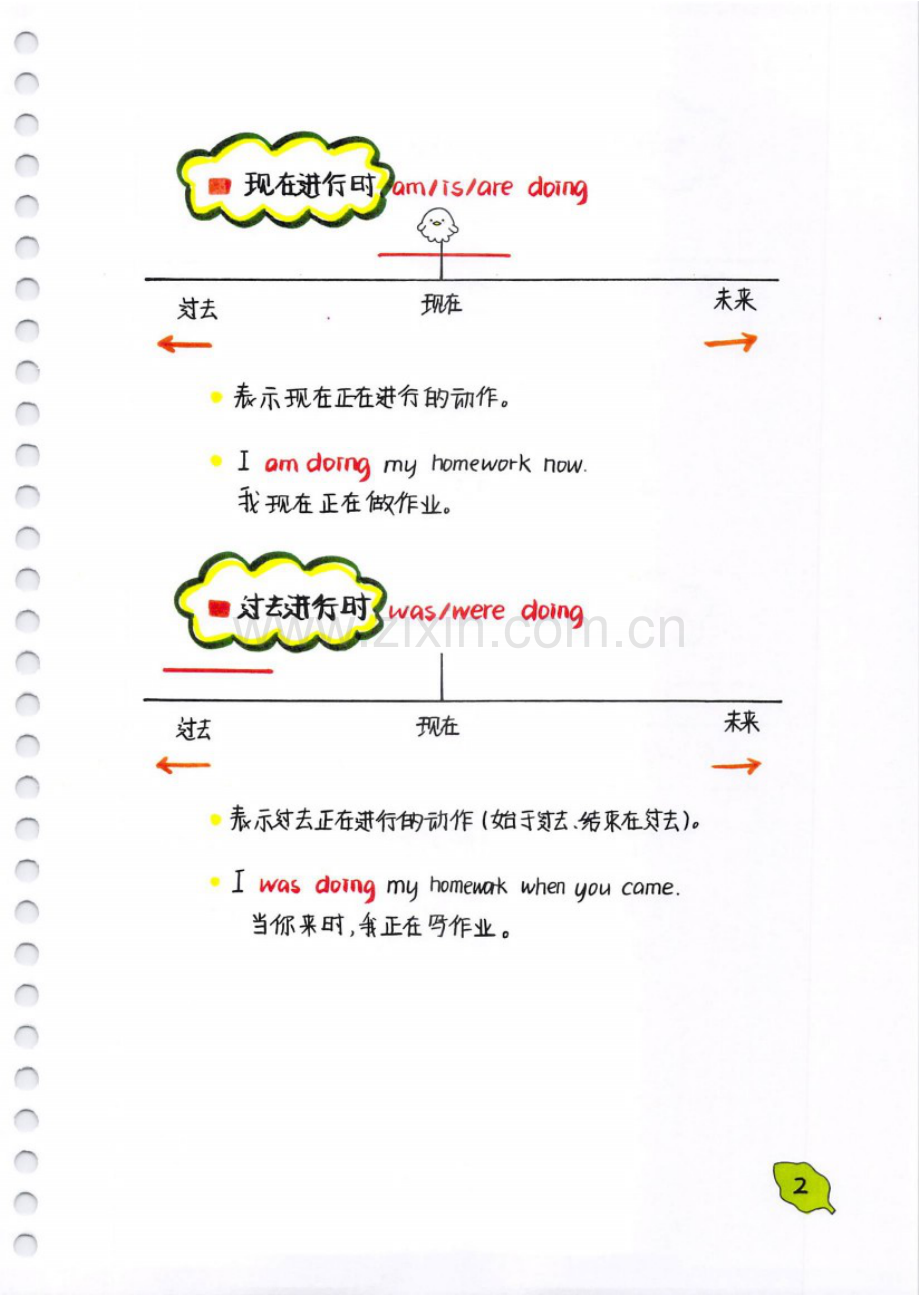 现在进行时 am/is/are doing
过去 现在 未来
表示现在正在进行的动作。
I am doing my homework now.
我现在正在做作业。
过去进行时 was/were doing
www.zixin.com.cn
过去 现在 未来
表示过去正在进行的动作(始于过去、结束在过去)。
I was doing my homework when you came.
当你来时,我正在写作业。
2